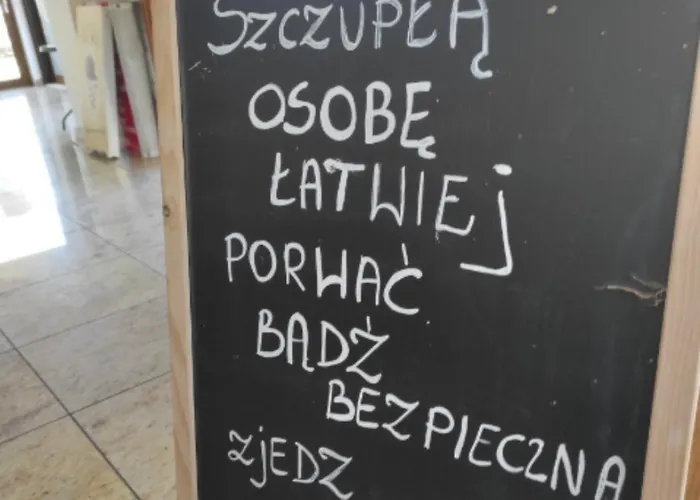 SZCZUPŁĄ
OSOBĘ
ŁATWIEJ
PORWAĆ
BĄDŹ
BEZPIECZNA
ZJEDZ